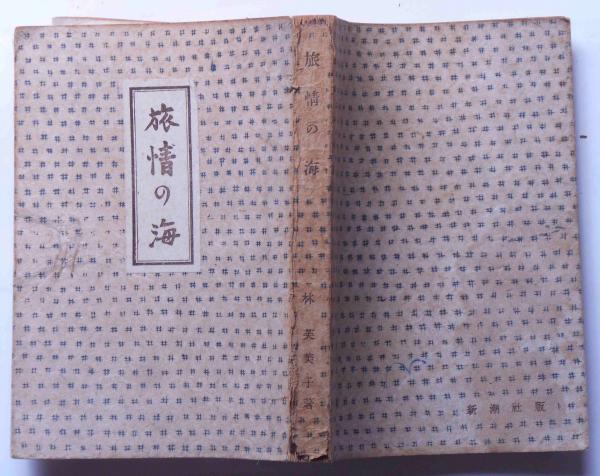 旅情の海
旅情の海
林芙美子著
新潮社版